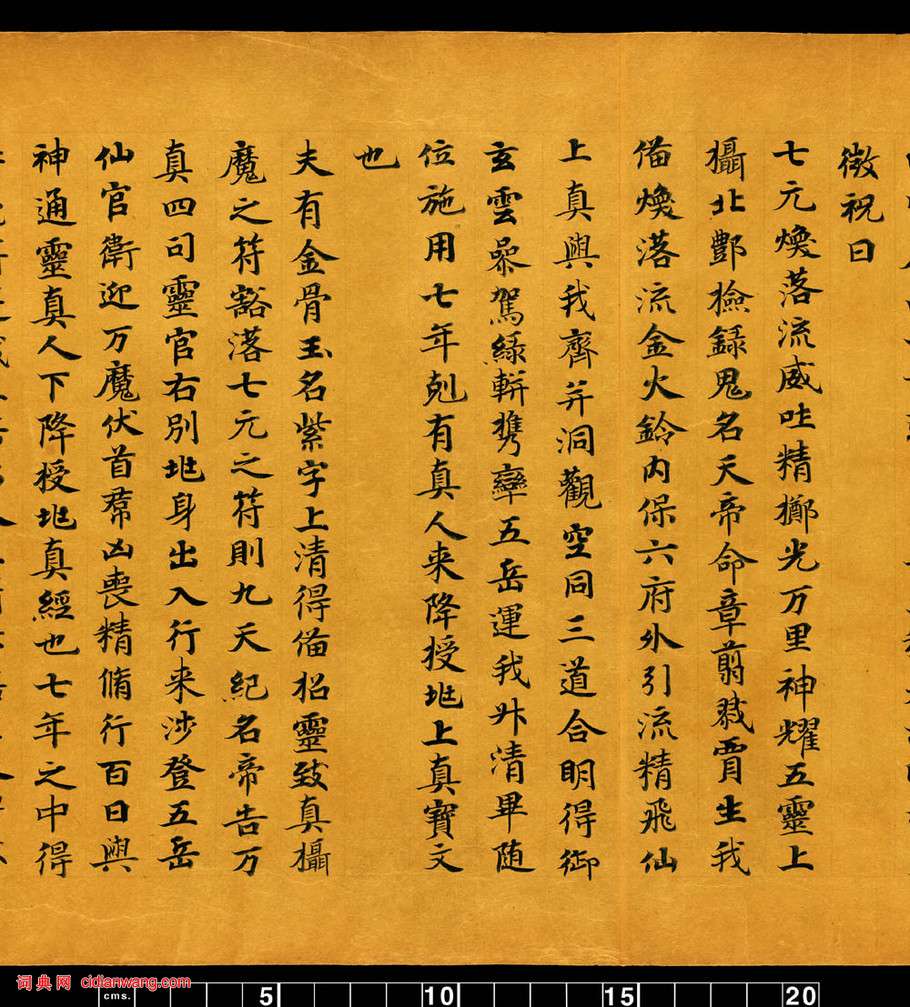 微祝曰
七元煥落流威吐精擲光万里神耀五靈上
攝北酆撿録鬼名天帝命章翦戮賈生我
俻煥落流金火鈴內保六府外引流精飛仙
上真與我齊并洞觀空同三道合明得御
玄雲飛駕緑軿携鸞五岳運我升清畢随
位施用七年剋有真人来降授地上真寳文
也
夫有金骨玉名紫字上清得俻招靈致真攝
魔之符豁落七元之符則九天紀名帝告万
真四司靈官右別地身出入行来涉登五岳
仙官衛迎万魔伏首群凶喪精脩行百日與
神通靈真人下降授地真經也七年之中得
词典网 cidianwang.com
cms. 5 10 15 20